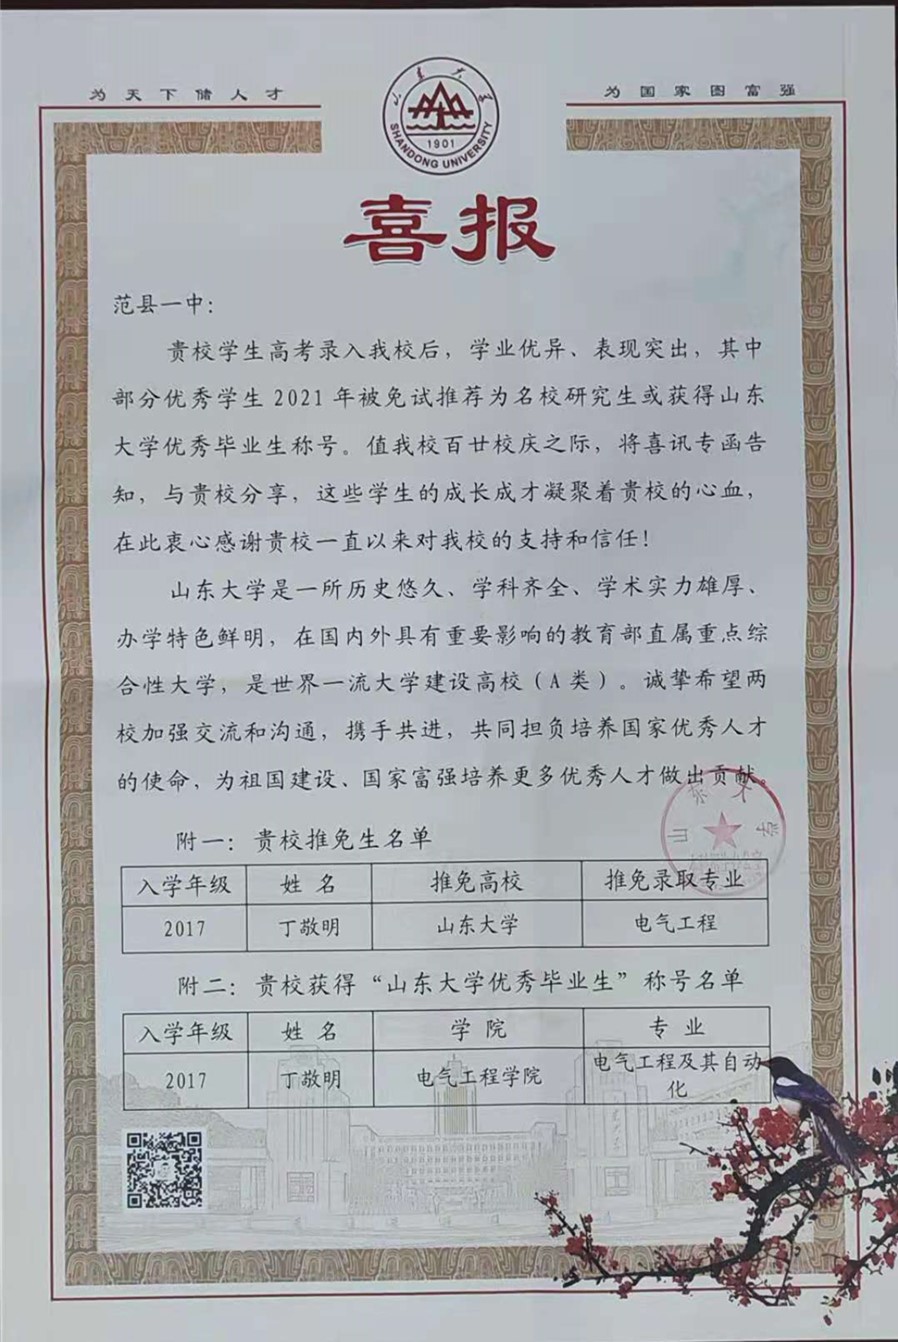 为天下储人才
为国家图富强
山东大学
SHANDONG UNIVERSITY
1901
喜报
范县一中：
贵校学生高考录入我校后，学业优异、表现突出，其中
部分优秀学生2021年被免试推荐为名校研究生或获得山东
大学优秀毕业生称号。值我校百廿校庆之际，将喜讯专函告
知，与贵校分享，这些学生的成长成才凝聚着贵校的心血，
在此衷心感谢贵校一直以来对我校的支持和信任！
山东大学是一所历史悠久、学科齐全、学术实力雄厚、
办学特色鲜明，在国内外具有重要影响的教育部直属重点综
合性大学，是世界一流大学建设高校（A类）。诚挚希望两
校加强交流和沟通，携手共进，共同担负培养国家优秀人才
的使命，为祖国建设、国家富强培养更多优秀人才做出贡献。
山东大学
附一：贵校推免生名单
入学年级 姓名 推免高校 推免录取专业
2017 丁敬明 山东大学 电气工程
附二：贵校获得“山东大学优秀毕业生”称号名单
入学年级 姓名 学院 专业
2017 丁敬明 电气工程学院 电气工程及其自动
化